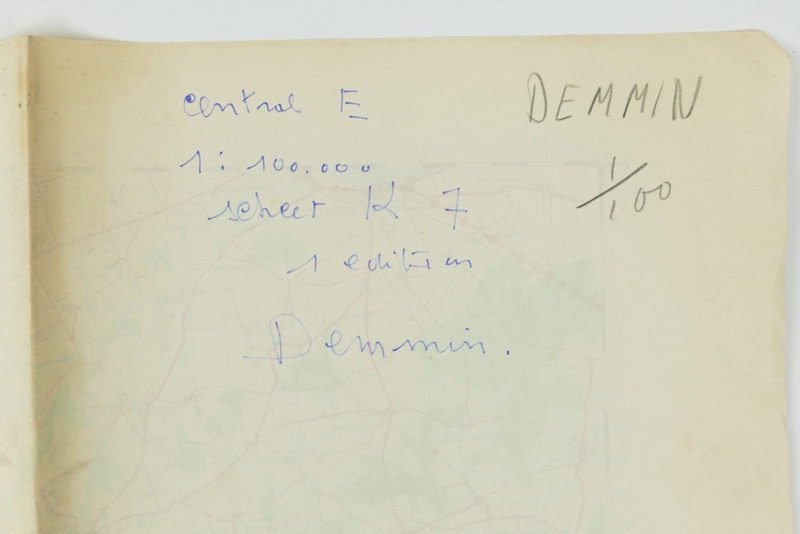 central E
1 : 100.000
scheet K 7
1 edition
Demmin.
DEMMIN
1/100